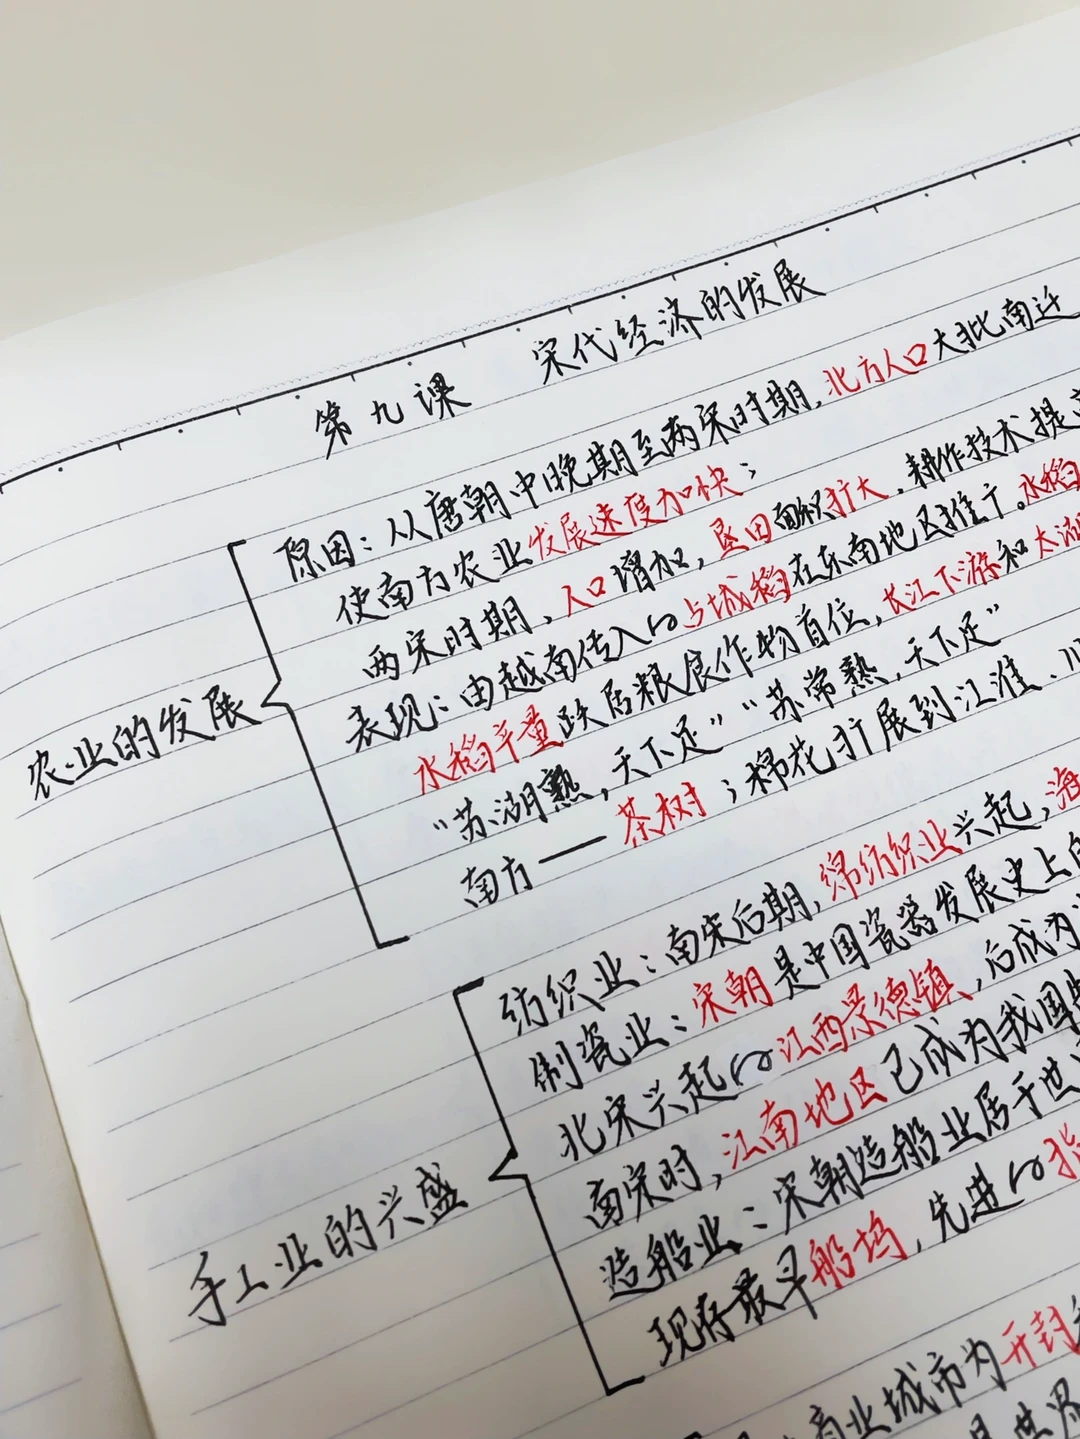 第九课 宋代经济的发展
农业的发展
原因：从唐朝中晚期至两宋时期，北方人口大批南迁
使南方农业发展速度加快；
两宋时期，人口增加，垦田面积扩大，耕作技术提
表现：由越南传入的占城稻在东南地区推广。水稻
水稻产量跃居粮食作物首位，长江下游和太湖
“苏湖熟，天下足”“苏常熟，天下足”
南方——茶树；棉花扩展到江淮、川
手工业的兴盛
纺织业：南宋后期，绵纺织业兴起，海
制瓷业：宋朝是中国瓷器发展史上的
北宋兴起的江西景德镇，后成为
南宋时，江南地区已成为我国
造船业：宋朝造船业居于世
现存最早船坞，先进的指
商业城市为开封
是世界